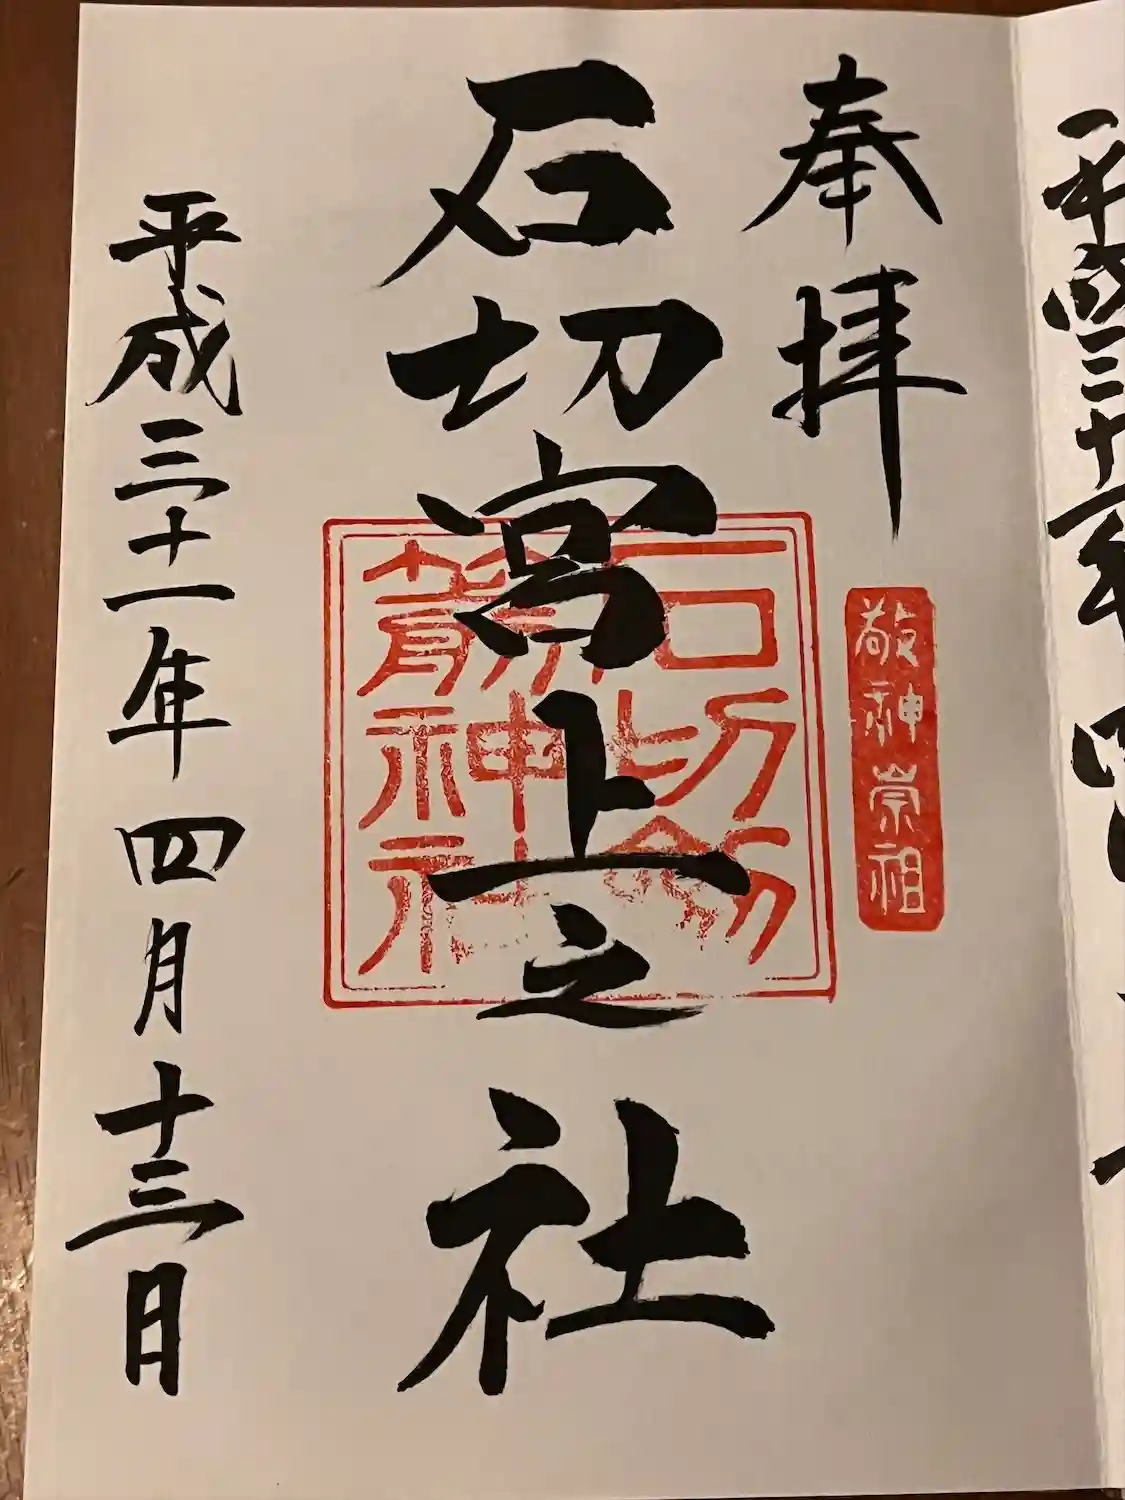 奉拝
敬神崇祖
石切宮上之社
石切劔
箭神社
平成三十一年四月十三日